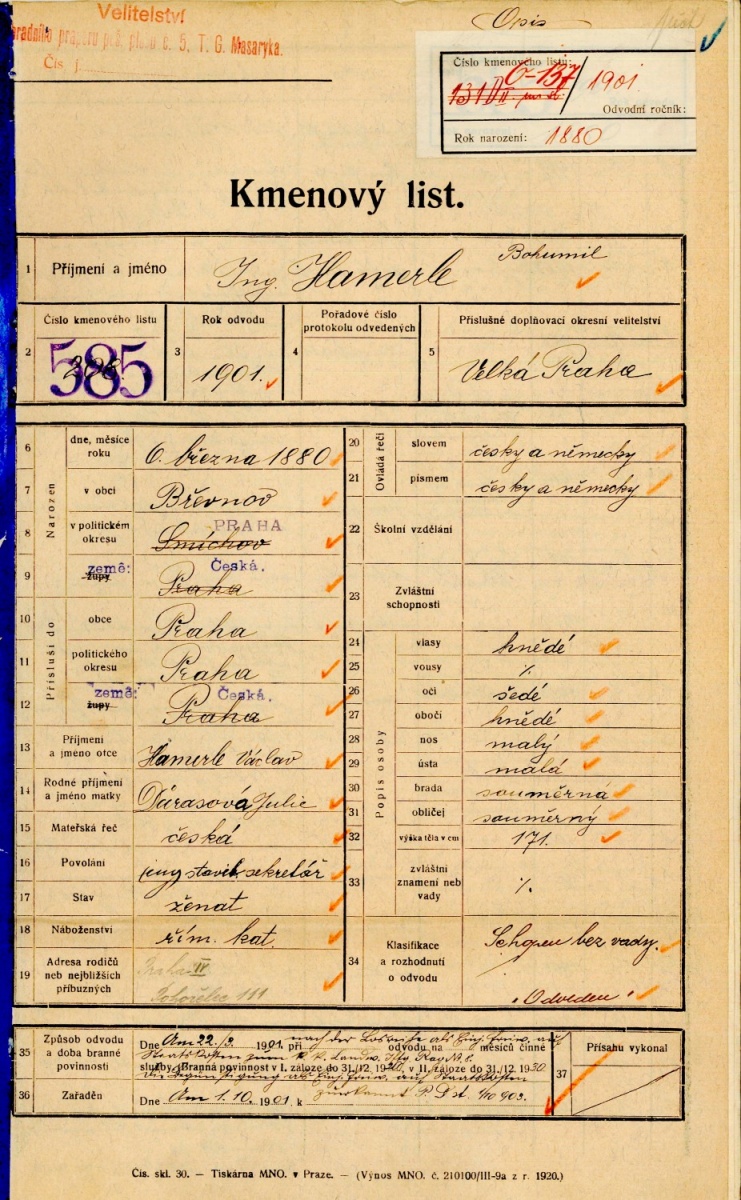 Velitelství
praporu pěš. pluku č. 5. T. G. Masaryka.
Čís. j.
Opis
Číslo kmenového listu:
6-137 / 1901
Odvodní ročník:
Rok narození: 1880
Kmenový list.
1 Příjmení a jméno Ing. Hamerle Bohumil
2 Číslo kmenového listu 585
3 Rok odvodu 1901.
4 Pořadové číslo protokolu odvedených
5 Příslušné doplňovací okresní velitelství Velká Praha
Narozen
6 dne, měsíce roku 6. března 1880
7 v obci Břevnov
8 v politickém okresu PRAHA Smíchov
9 země: župy Česká. Praha
Přísluší do
10 obce Praha
11 politického okresu Praha
12 země: župy Česká. Praha
13 Příjmení a jméno otce Hamerle Václav
14 Rodné příjmení a jméno matky Julie
15 Mateřská řeč česká
16 Povolání stavit. sekretář
17 Stav ženat
18 Náboženství řím. kat.
19 Adresa rodičů neb nejbližších příbuzných Praha IV
Pohořelec 111
Ovládá řeči
20 slovem česky a německy
21 písmem česky a německy
22 Školní vzdělání
23 Zvláštní schopnosti
Popis osoby
24 vlasy hnědé
25 vousy %
26 oči šedé
27 obočí hnědé
28 nos malý
29 ústa malá
30 brada souměrná
31 obličej souměrný
32 výška těla v cm 171.
33 zvláštní znamení neb vady %.
34 Klasifikace a rozhodnutí o odvodu Schopen bez vady.
"Odveden"
35 Způsob odvodu a doba branné povinnosti
Dne Am 22./3. 1901 při nach der Losreihe als Einj. Freiw. auf odvodu na měsíců činné
Staatskosten zum k. k. Landw.
služby (Branná povinnost v I. záloze do 31./12. 1920, v II. záloze do 31./12. 1930
als Einj. Freiw. auf Staatskosten
36 Zařaděn Dne Am 1. 10. 1901 k zuerkannt
37 Přísahu vykonal
Čís. skl. 30. — Tiskárna MNO. v Praze. — (Výnos MNO. č. 210100/III-9a z r. 1920.)